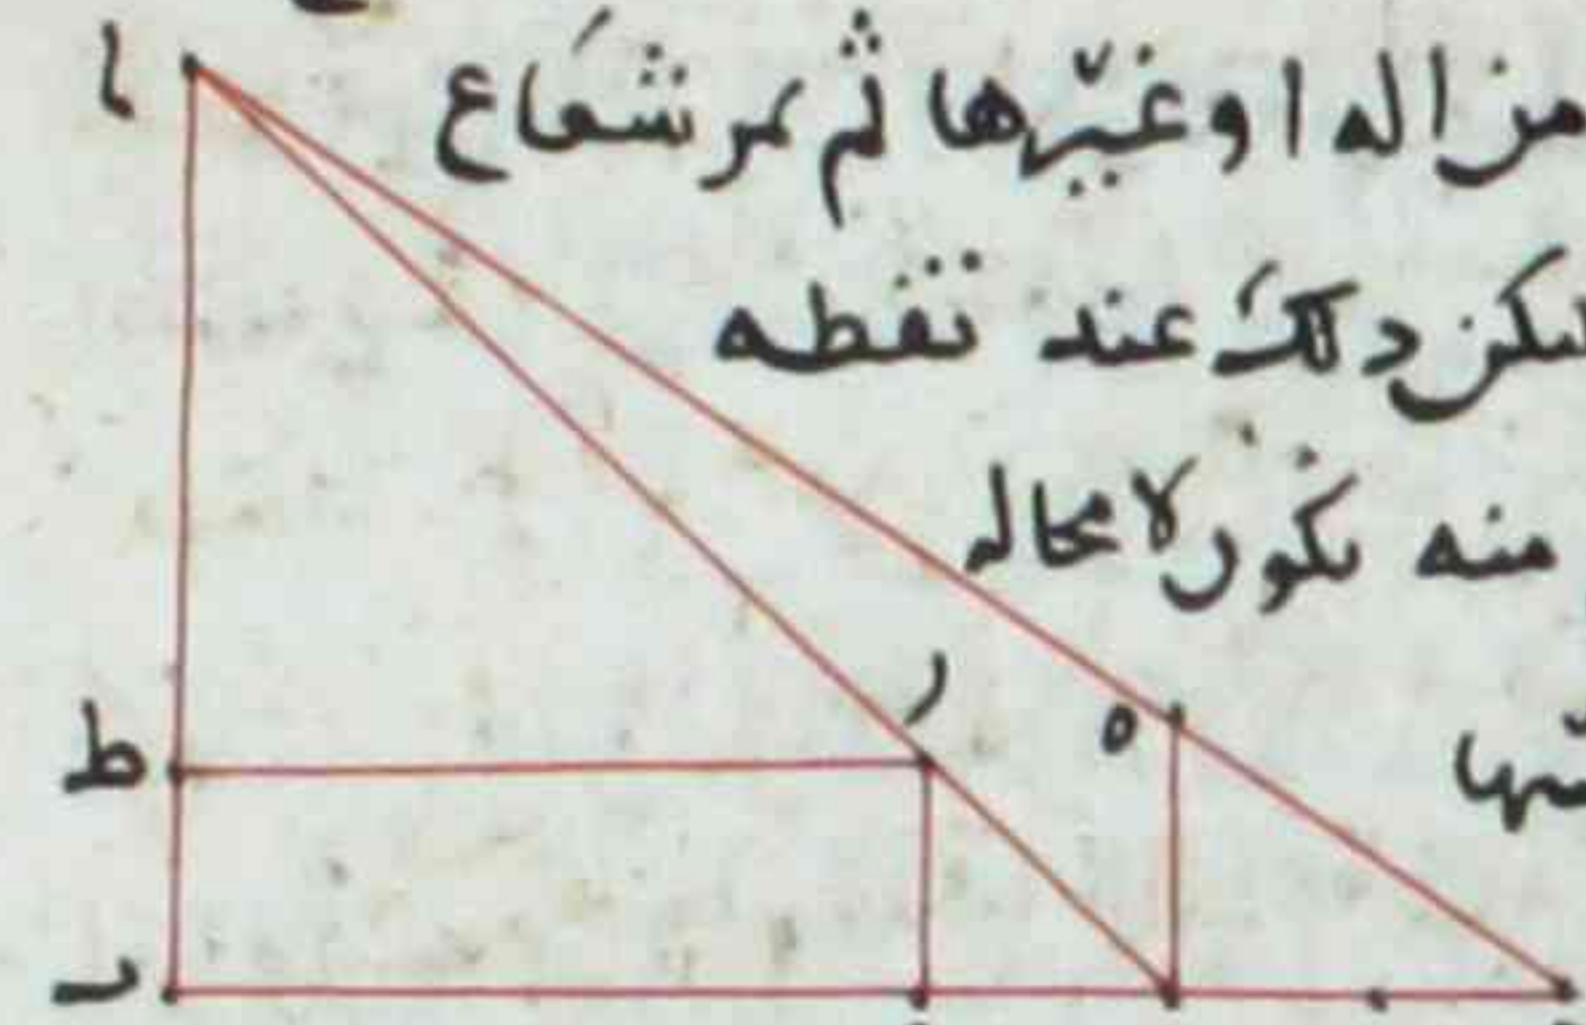 ا
من اله او غيرها ثم يمر شعاع
ليكن دلك عند نقطه
منه يكون لا محاله
ر
ه
ط
ب